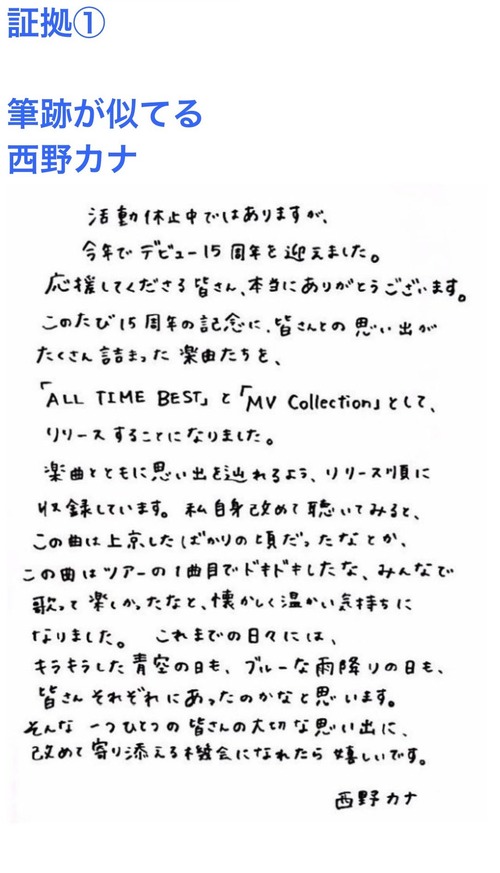 証拠①
筆跡が似てる
西野カナ
活動休止中ではありますが、
今年でデビュー15周年を迎えました。
応援してくださる皆さん、本当にありがとうございます。
このたび15周年の記念に、皆さんとの思い出が
たくさん詰まった楽曲たちを、
「ALL TIME BEST」と「MV Collection」として、
リリースすることになりました。
楽曲とともに思い出を辿れるよう、リリース順に
収録しています。私自身改めて聴いてみると、
この曲は上京したばかりの頃だったなとか、
この曲はツアーの1曲目でドキドキしたな、みんなで
歌って楽しかったなと、懐かしく温かい気持ちに
なりました。 これまでの日々には、
キラキラした青空の日も、ブルーな雨降りの日も、
皆さんそれぞれにあったのかなと思います。
そんな 一つひとつの皆さんの大切な思い出に、
改めて寄り添える機会になれたら嬉しいです。
西野カナ